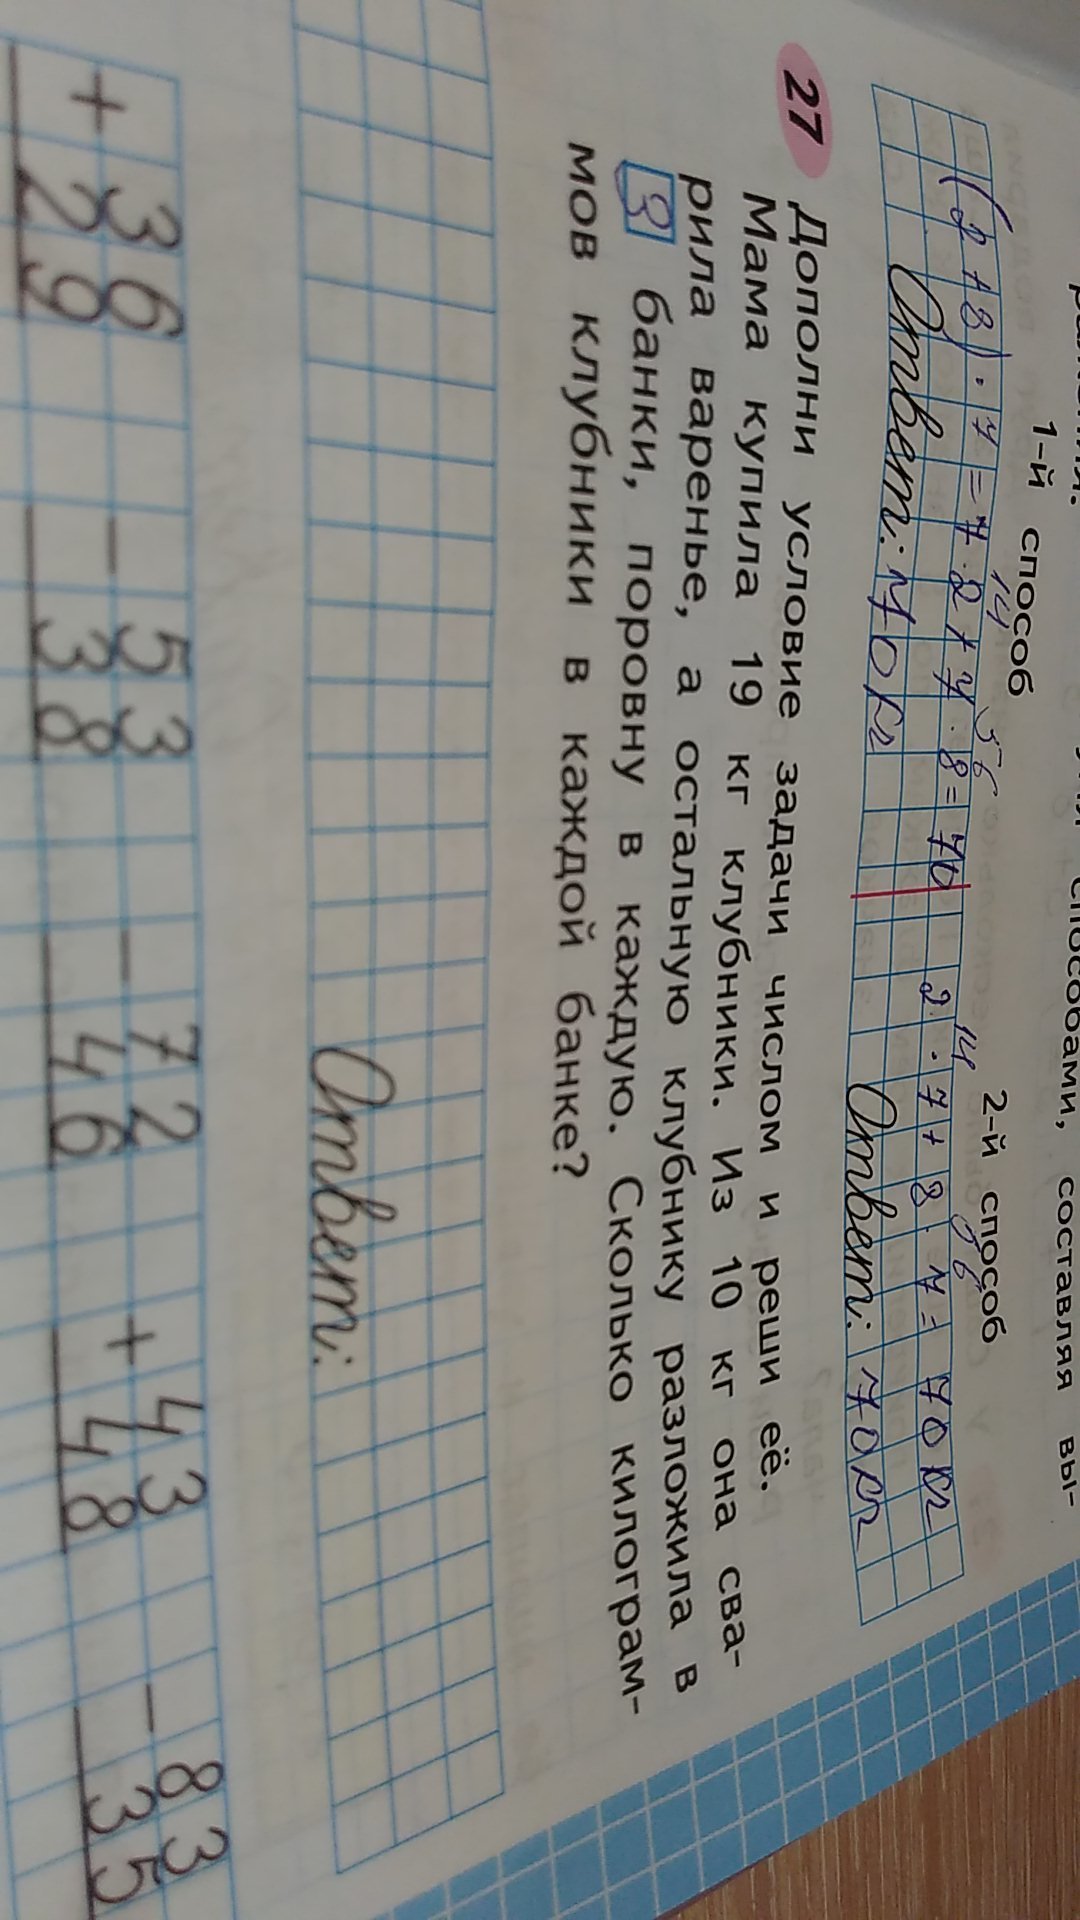 способами, составляя вы-
1-й способ
2-й способ
14 56
(2 + 8) · 7 = 7 · 2 + 7 · 8 = 70
14 56
2 · 7 + 8 · 7 = 70 кг
Ответ: 70 кг
Ответ: 70 кг
27 Дополни условие задачи числом и реши её.
Мама купила 19 кг клубники. Из 10 кг она сва-
рила варенье, а остальную клубнику разложила в
3 банки, поровну в каждую. Сколько килограм-
мов клубники в каждой банке?
Ответ:
+ 36 − 53 − 72 + 43 − 83
29 38 46 48 35